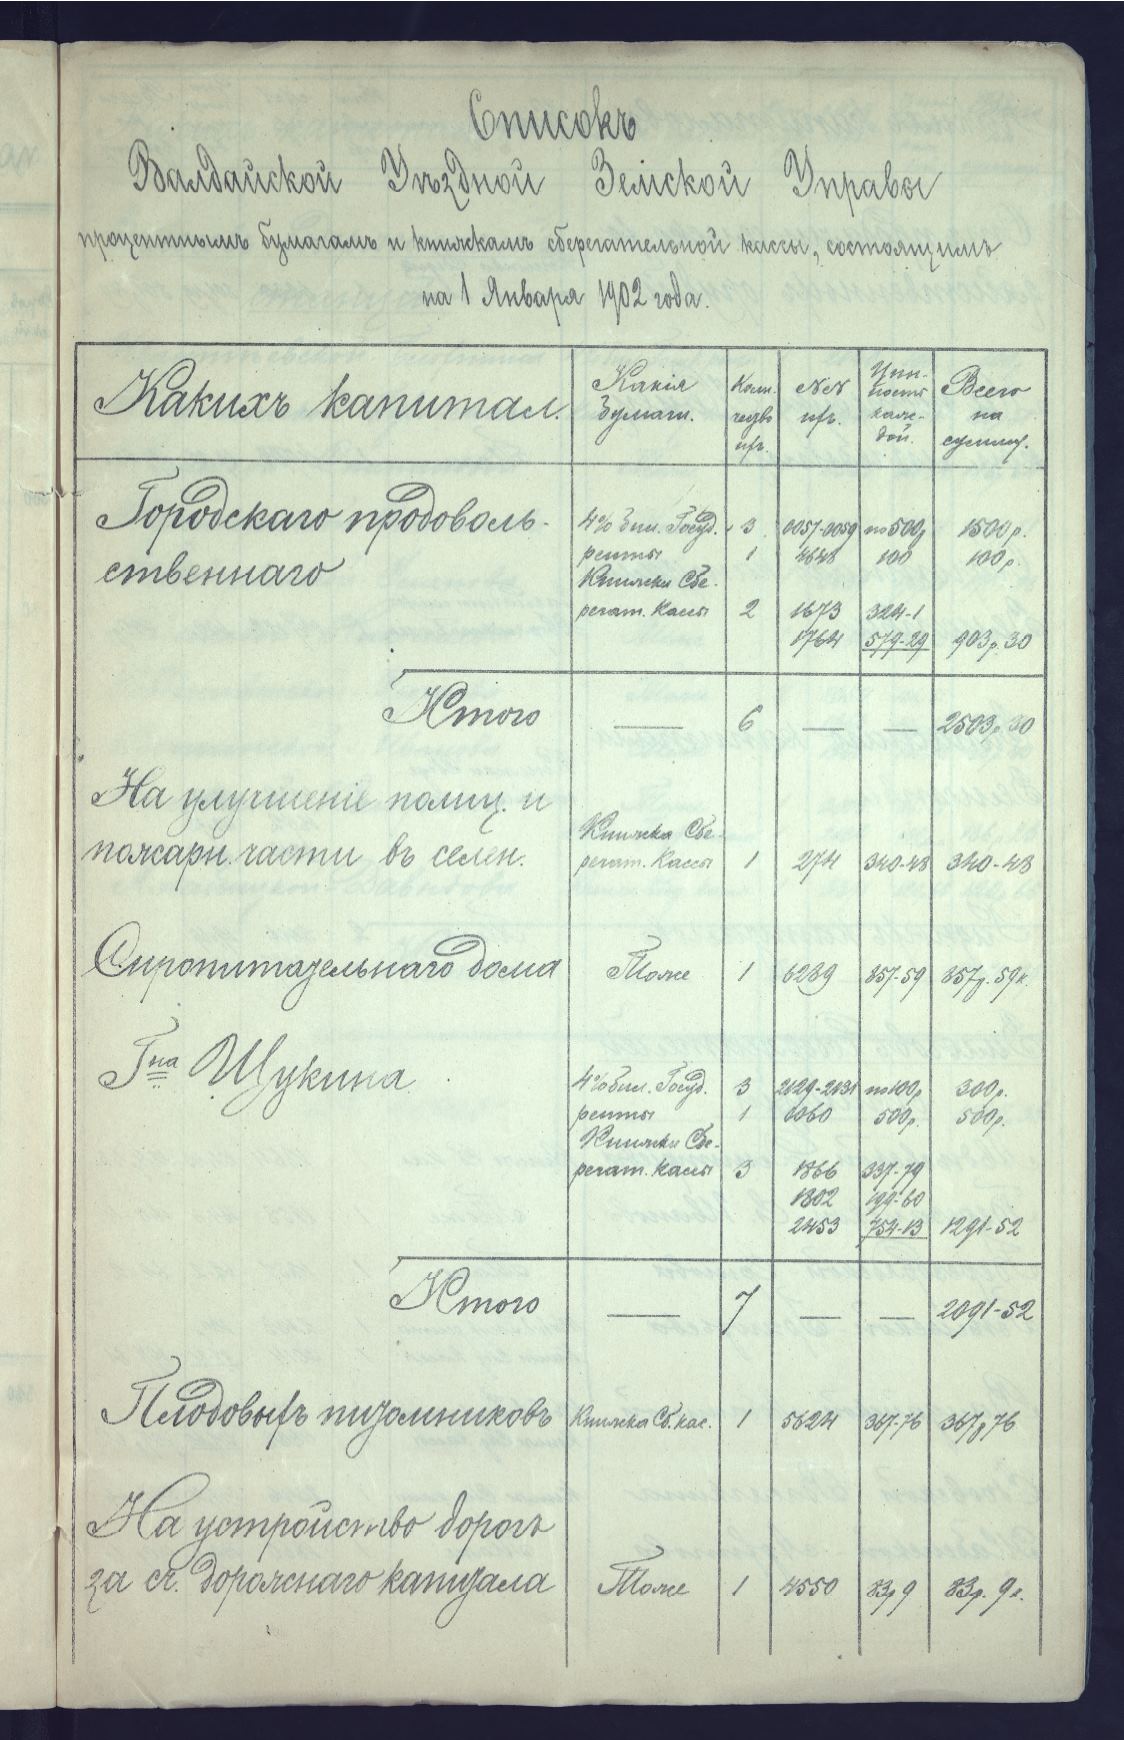 Списокъ
Валдайской Уѣздной Земской Управы
процентнымъ бумагамъ и книжкамъ сберегательной кассы, состоящимъ
на 1 Января 1902 года.
Какихъ капитал. Какія бумаги. Коли-чество ихъ. №№ ихъ. Цѣн-ность каж-дой. Всего на сумму.
Городскаго продоволь- 4% бил. Госуд. 3 0057-0059 по 500р 1500р.
ственнаго ренты 1 4648 100 100р.
Книжки Сбе-
регат. Кассы 2 1673 324-1
1764 579-29 903р.30
Итого — 6 — — 2503р.30
На улучшеніе полиц. и
Книжка Сбе-
пожарн. части въ селен. регат. Кассы 1 274 340-48 340-48
Сиропитательнаго дома Тоже 1 6289 857-59 857р.59к.
Гна Щукина
4% бил. Госуд. 3 2129-2131 по 100р 300р.
ренты 1 6060 500р. 500р.
Книжки Сбе-
регат. Кассы 3 1866 337-79
1802 199-60
2453 754-13 1291-52
Итого — 7 — — 2091-52
Плодовыхъ питомниковъ Книжка Сб. кас. 1 5624 367-76 367р76
На устройство дорогъ
за сч. дорожнаго капитала Тоже 1 4550 83р9 83р.9к.